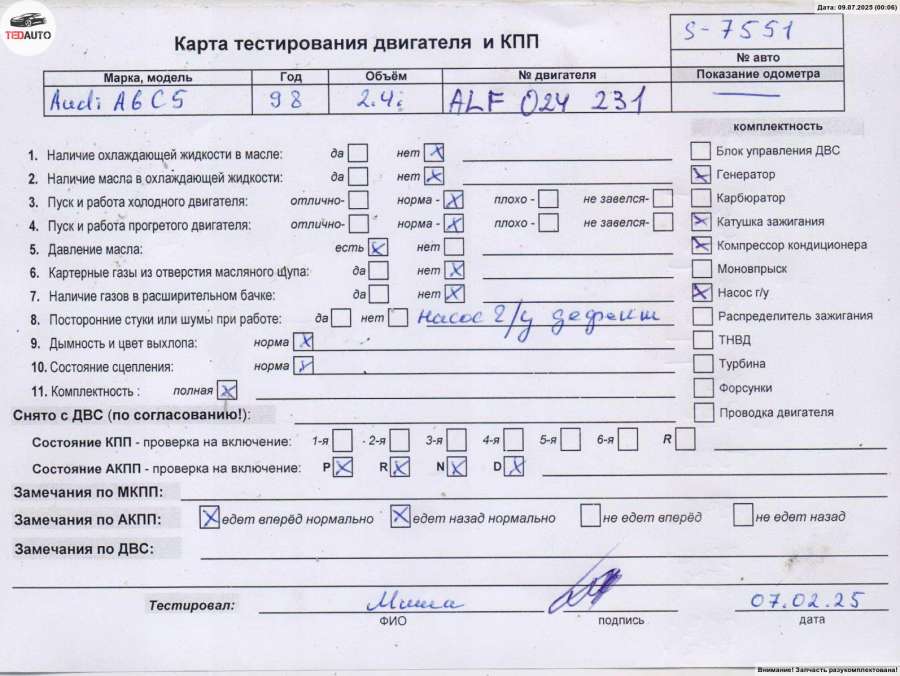 Дата: 09.07.2025 (00:06)
TEDAUTO
Карта тестирования двигателя и КПП
S-7551
№ авто
Марка, модель Год Объём № двигателя Показание одометра
Audi A6 C5 98 2.4i ALF 024 231
комплектность
1. Наличие охлаждающей жидкости в масле: да нет
Блок управления ДВС
2. Наличие масла в охлаждающей жидкости: да нет
Генератор
3. Пуск и работа холодного двигателя: отлично- норма - плохо - не завелся-
Карбюратор
4. Пуск и работа прогретого двигателя: отлично- норма - плохо - не завелся-
Катушка зажигания
5. Давление масла: есть нет
Компрессор кондиционера
6. Картерные газы из отверстия масляного щупа: да нет
Моновпрыск
7. Наличие газов в расширительном бачке: да нет
Насос г/у
8. Посторонние стуки или шумы при работе: да нет насос г/у дефект
Распределитель зажигания
9. Дымность и цвет выхлопа: норма
ТНВД
10. Состояние сцепления: норма
Турбина
11. Комплектность : полная
Форсунки
Снято с ДВС (по согласованию!):
Проводка двигателя
Состояние КПП - проверка на включение: 1-я 2-я 3-я 4-я 5-я 6-я R
Состояние АКПП - проверка на включение: P R N D
Замечания по МКПП:
Замечания по АКПП: едет вперёд нормально едет назад нормально не едет вперёд не едет назад
Замечания по ДВС:
Тестировал: Миша 07.02.25
ФИО подпись дата
Внимание! Запчасть разукомплектована!